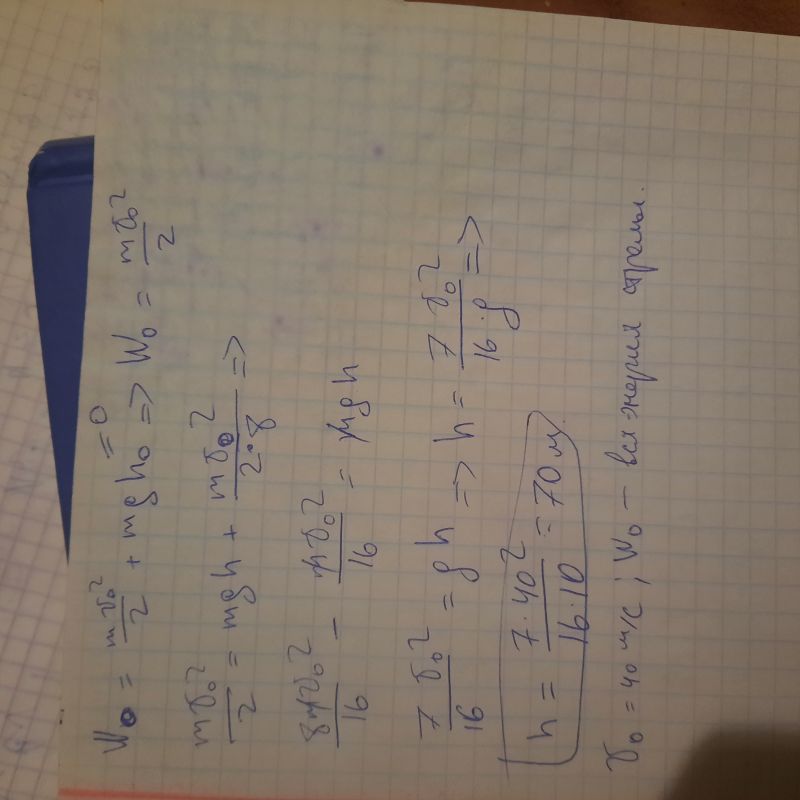 W₀ = mv₀²/2 + mgh₀ = 0 => W₀ = mv₀²/2
mv₀²/2 = mgh + mv₀²/2·8 =>
8mv₀²/16 - mv₀²/16 = mgh
7v₀²/16 = gh => h = 7v₀²/16·g =>
h = 7·40²/16·10 = 70 м.
v₀ = 40 м/с ; W₀ — вся энергия стрелы.